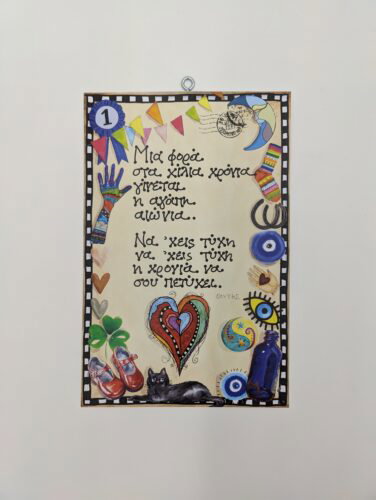 1
Μια φορά
στα χίλια χρόνια
γίνεται
η αγάπη
αιώνια..
Να 'χεις τύχη
να 'χεις τύχη
η χρονιά να
σου πετύχει..